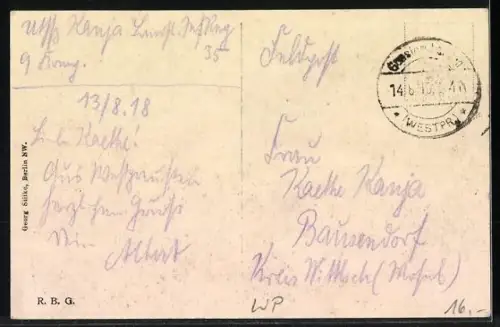 Uffz Kanja Landst. Inf. Reg
35
9 Komp.
13/8.18
Liebe Kaethe!
Aus Westpreußen
herzlichen Gruß
Dein Albert
Feldpost
14.8.
* (WESTPR.) *
Frau
Kaethe Kanja
Bausendorf
Kreis Wittlich (Mosel)
Georg Stilke, Berlin NW.
R. B. G.
WP
16.-